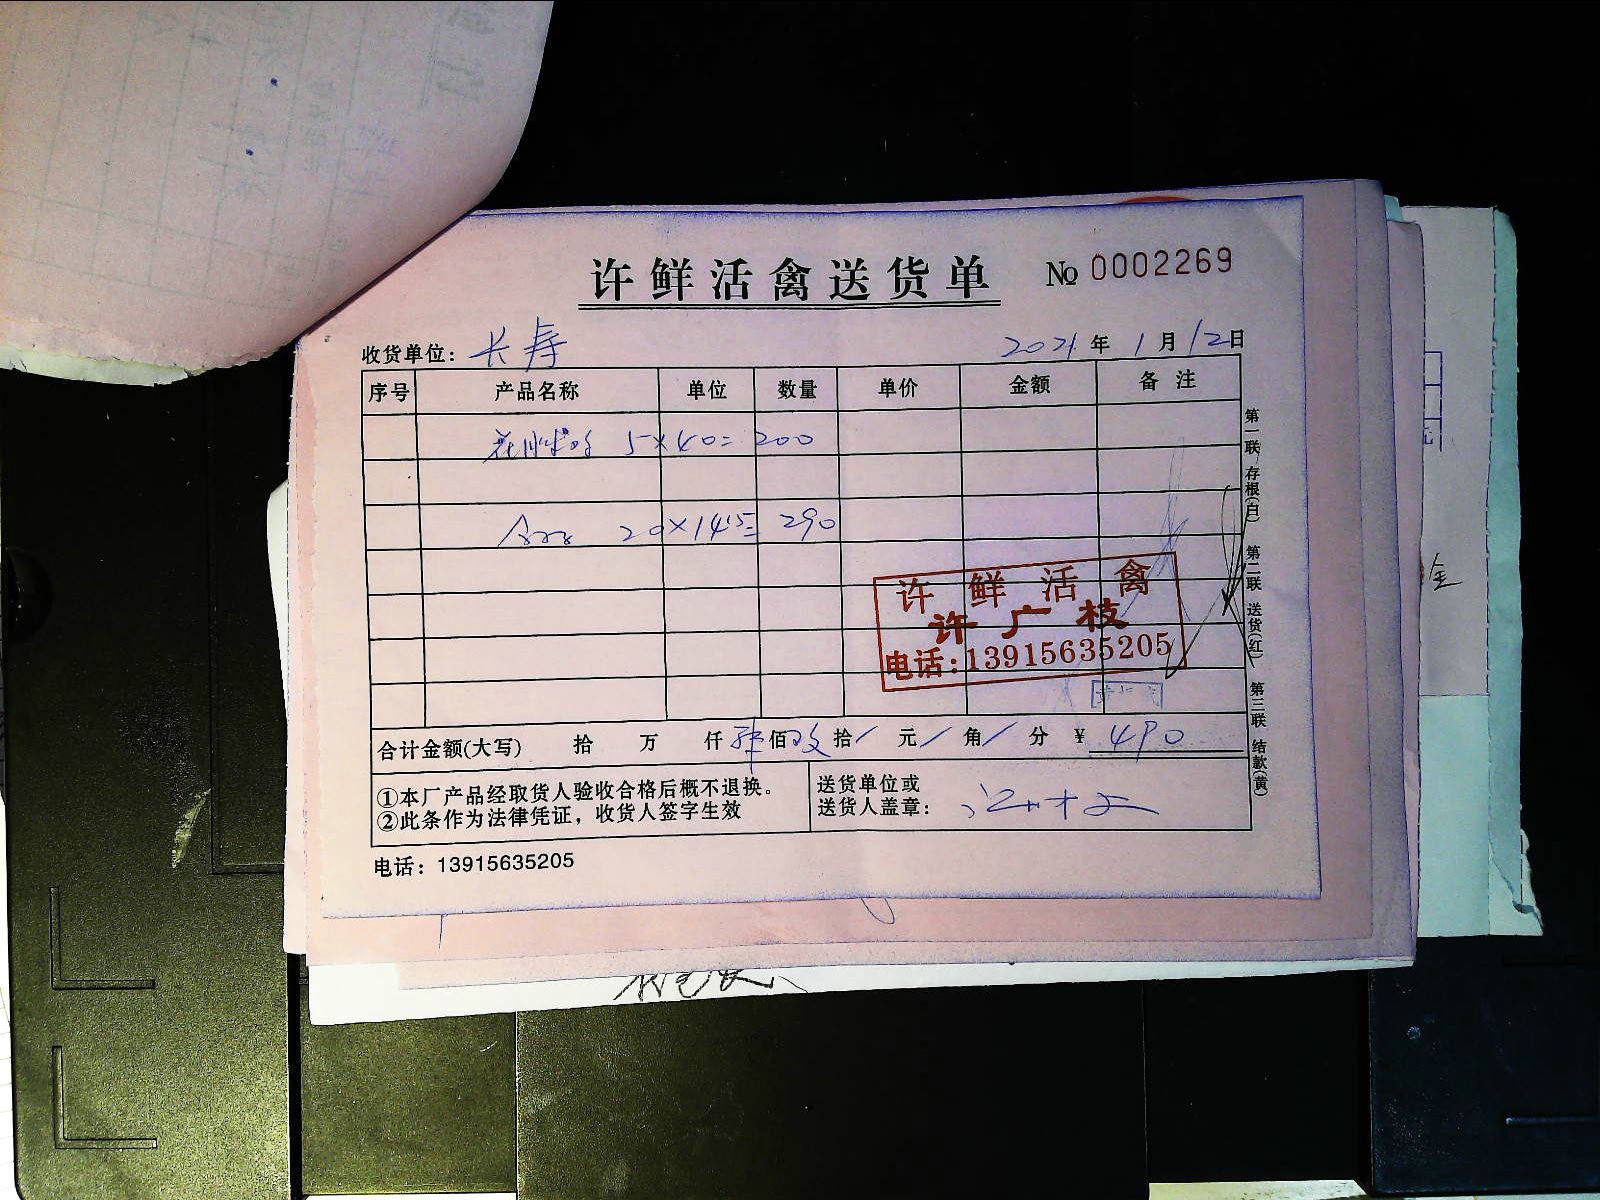 许鲜活禽送货单 № 0002269
收货单位: 长寿 2021 年 1 月 12 日
序号 产品名称 单位 数量 单价 金额 备注
5×40=200
20×14.5=290
许鲜活禽
许广枝
电话:13915635205
合计金额(大写) 拾 万 仟 肆 佰 玖 拾 / 元 / 角 / 分 ¥ 490
①本厂产品经取货人验收合格后概不退换。
②此条作为法律凭证，收货人签字生效
送货单位或
送货人盖章:
电话: 13915635205
第一联 存根(白) 第二联 送货(红) 第三联 结款(黄)